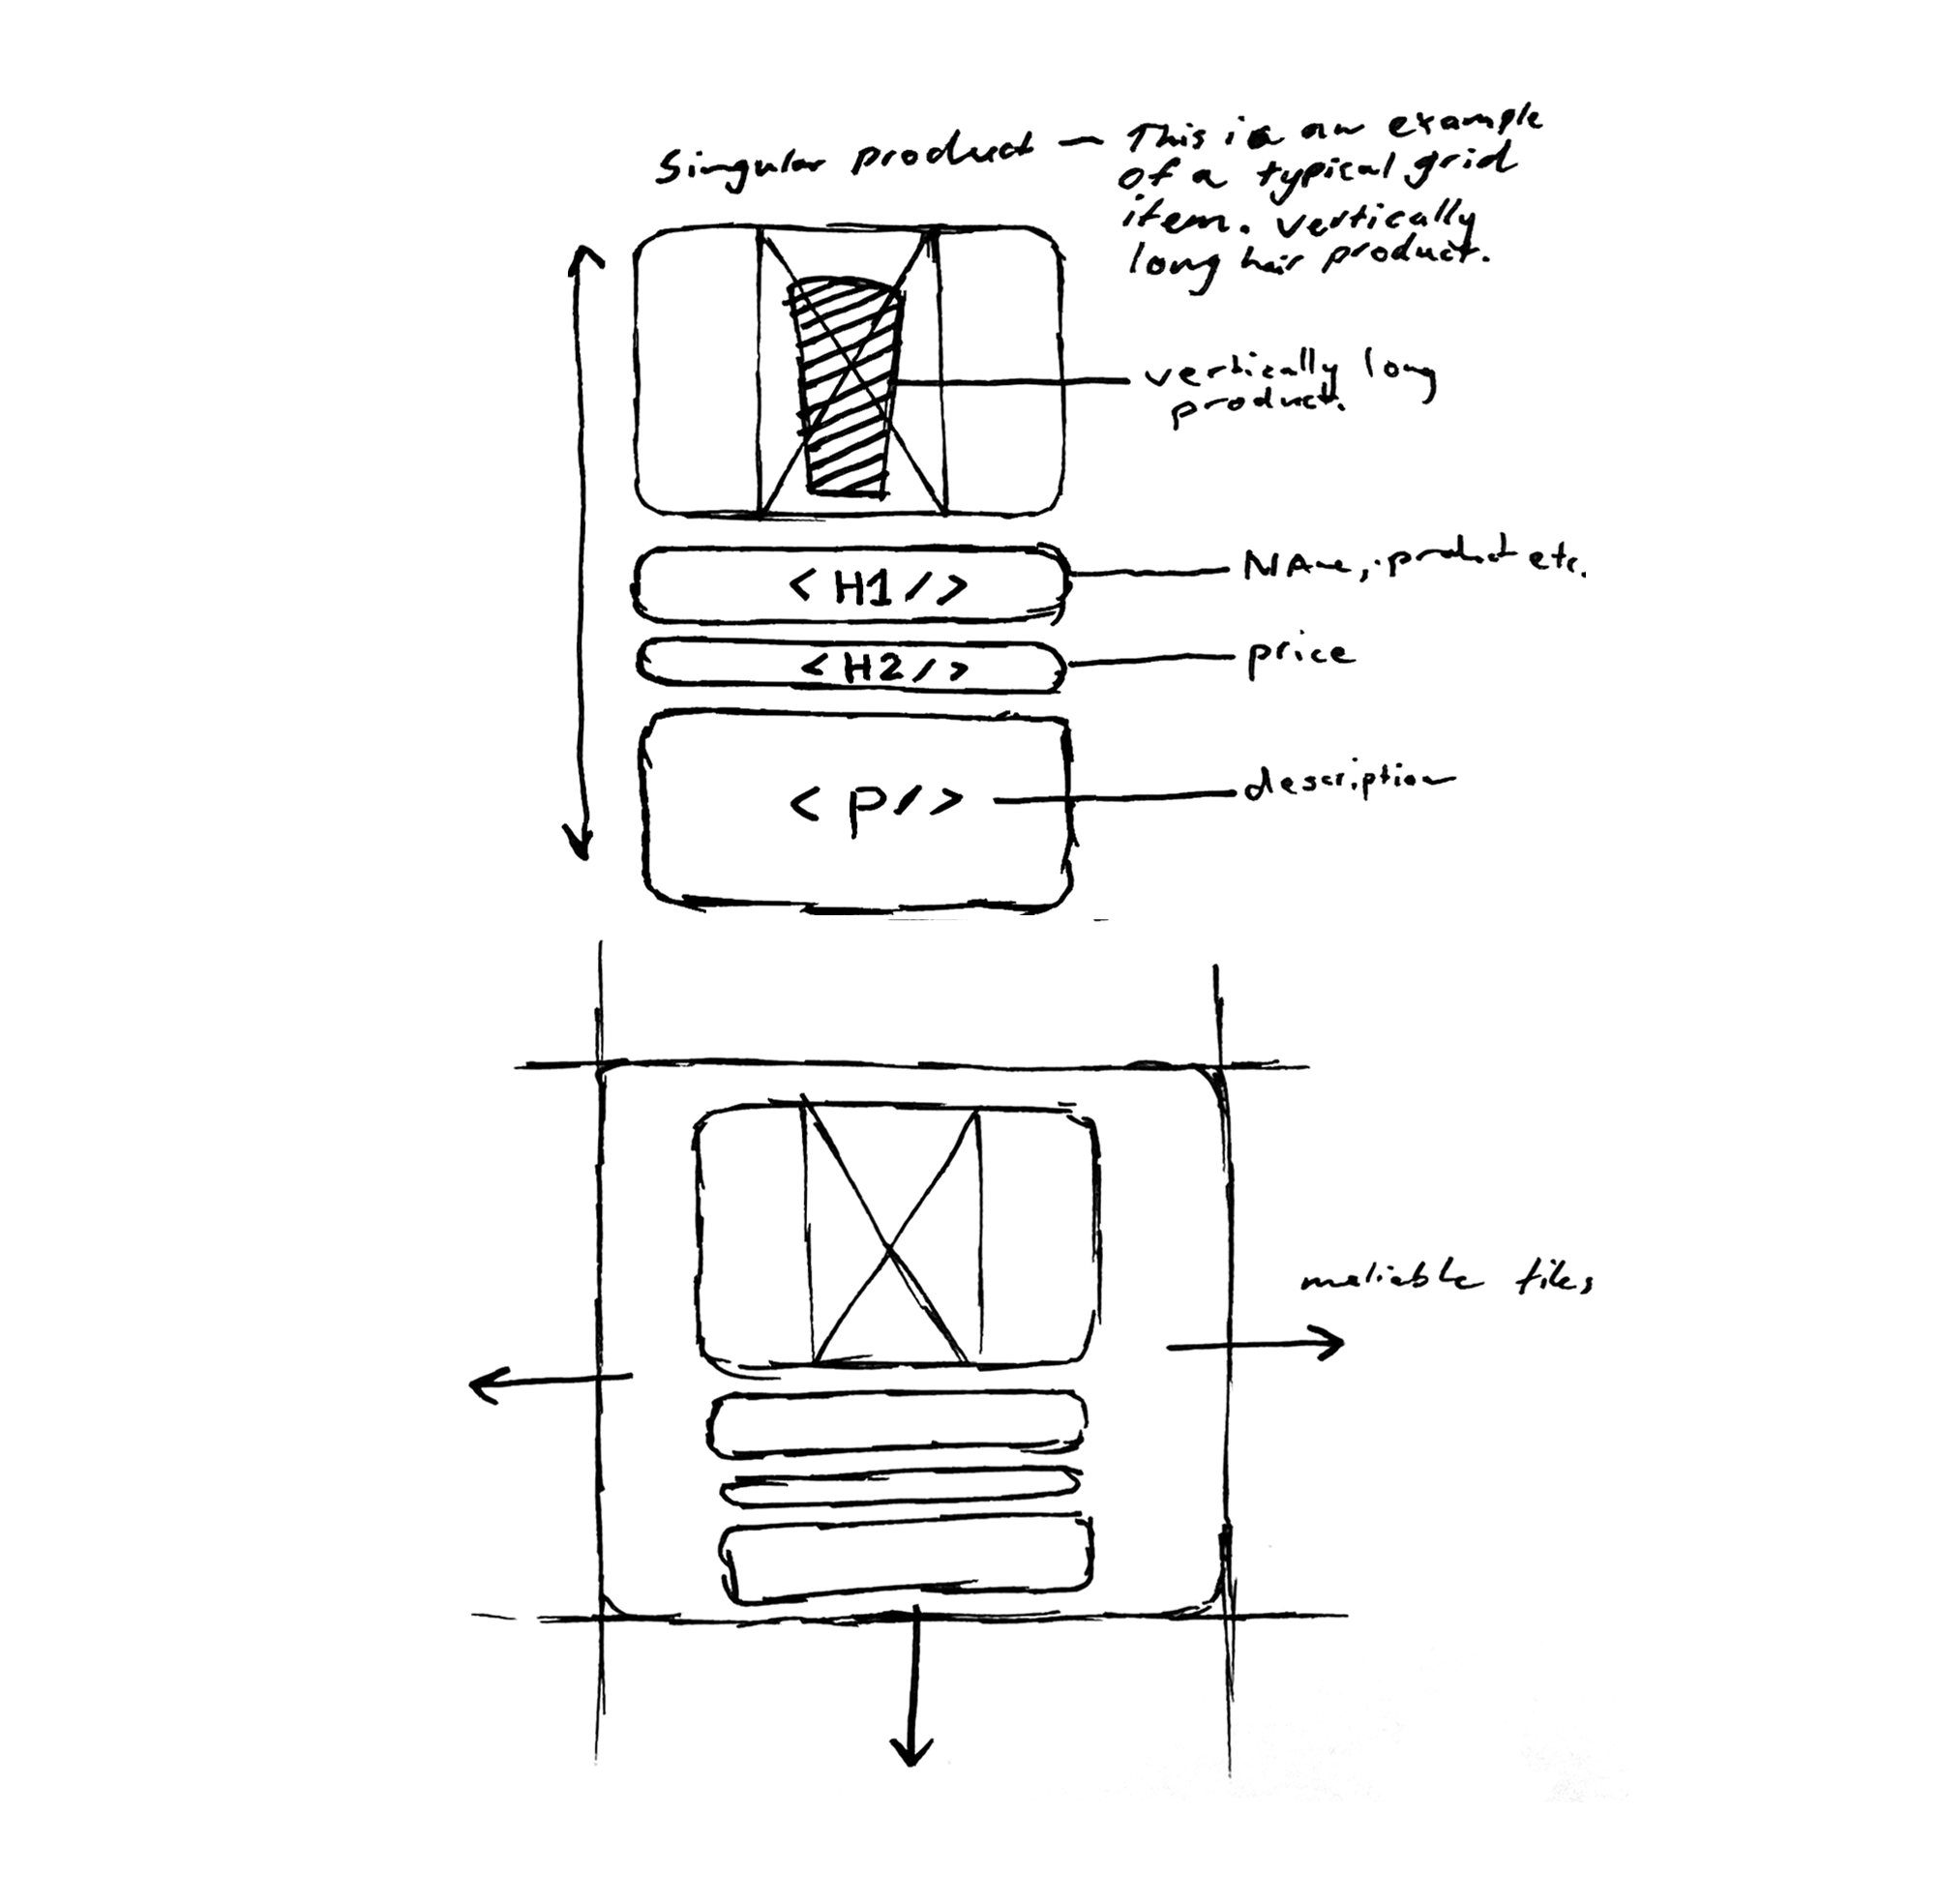 Singular product — This is an example
of a typical grid
item. vertically
long hair product.
vertically long
product.
<H1/>
NAme, product etc.
<H2/>
price
<p/>
description
maliable tiles